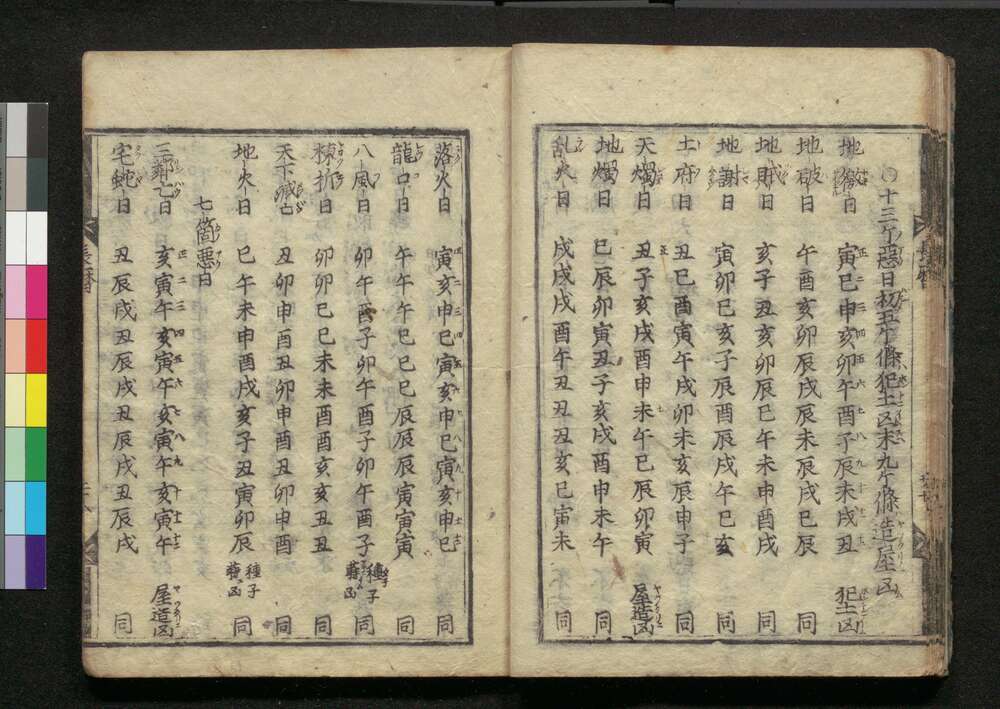 十三ケ惡日初五ケ條犯土凶末九ケ條造屋凶
日 寅巳申亥卯午酉子辰未戌丑 犯土凶
地破日 午酉亥卯辰戌未辰戌巳辰 同
地賊日 亥子丑亥卯辰巳午未申酉戌 同
地謝日 寅卯巳亥子辰酉辰戌午巳亥 同
土府日 丑巳酉寅午戌卯未亥辰申子 同
天燭日 丑子亥戌酉申未午巳辰卯寅 屋造凶
地燭日 巳辰卯寅丑子亥戌酉申未午 同
乱火日 戌戌戌酉午丑丑丑亥巳寅未 同
落火日 寅亥申巳寅亥申巳寅亥申巳 同
龍口日 午午午巳巳辰辰辰寅寅寅 同
八風日 卯午酉子卯午酉子卯午酉子 種子蒔凶 同
棟折日 卯卯巳巳未未酉酉亥亥丑丑 同
天下滅亡 丑卯申酉丑卯申酉丑卯申酉 同
地火日 巳午未申酉戌亥子丑寅卯辰 種子蒔凶 同
七箇悪日
三鄰亡日 亥寅午亥寅午亥寅午亥寅午 屋造凶
宅蛇日 丑辰戌丑辰戌丑辰戌丑辰戌 同
長暦